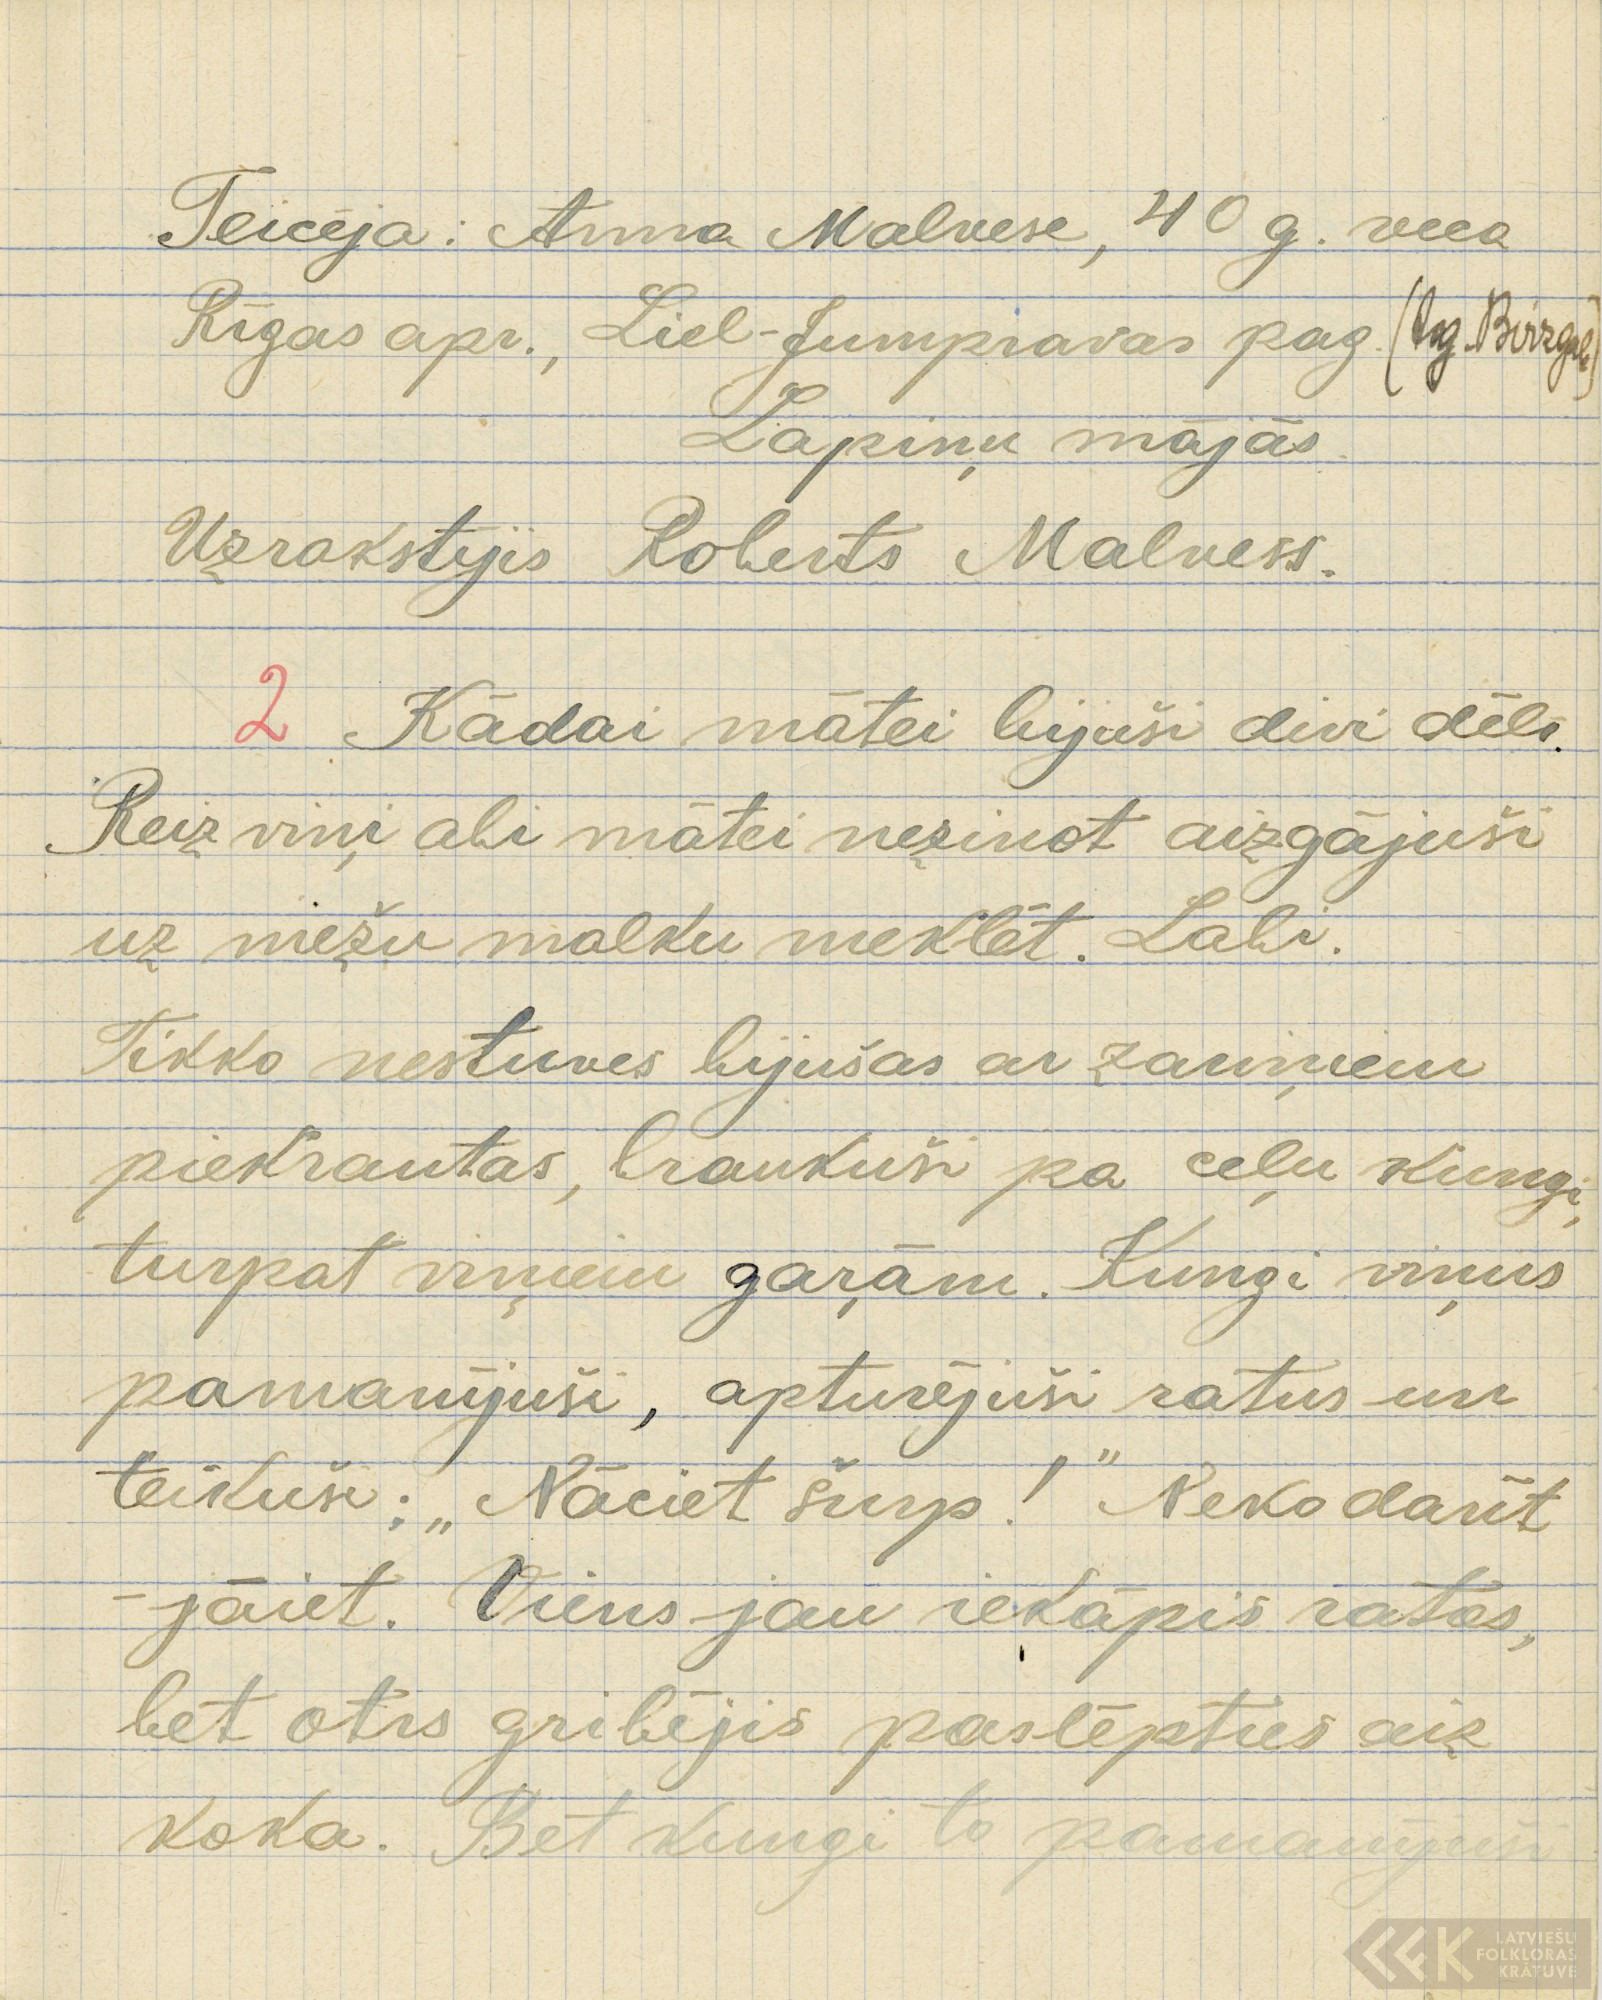 Teicēja: Anna Malvese, 40 g. veca
Rīgas apr., Liel-Jumpravas pag. (tag. Birzgale)
Lapiņu mājās
Uzrakstījis Roberts Malvess.
2 Kādai mātei bijuši divi dēli.
Reiz viņi abi mātei nezinot aizgājuši
uz mežu malku meklēt. Labi.
Tikko nestuves bijušas ar zariņiem
piekrautas, braukuši pa ceļu kungi,
turpat viņiem gaŗām. Kungi viņus
pamanījuši, apturējuši ratus un
teikuši: „Nāciet šurp!” Neko darīt
- jāiet. Viens jau iekāpis ratos,
bet otrs gribējis paslēpties aiz
koka. Bet kungi to pamanījuši
LATVIEŠU
FOLKLORAS
KRĀTUVE